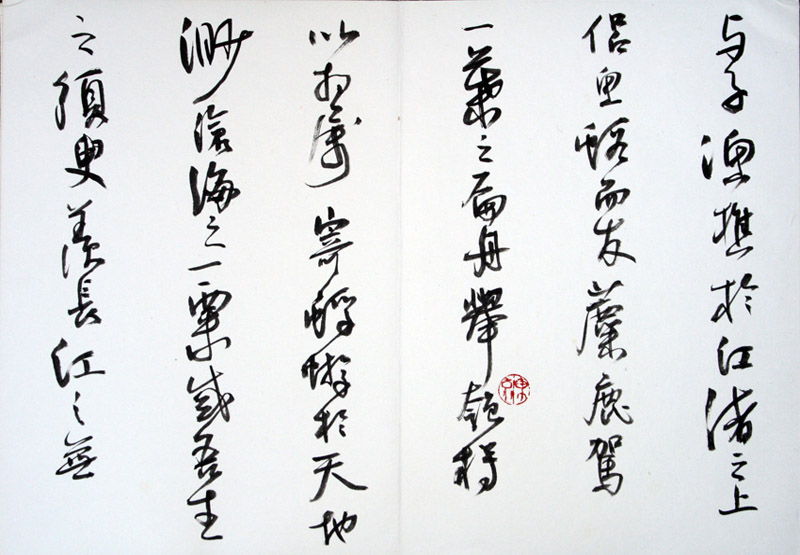 与子漁樵於江渚之上
侣魚蝦而友麋鹿駕
一葉之扁舟舉匏樽
以相属寄蜉蝣於天地
渺滄海之一粟 吾生
之須臾羨長江之無